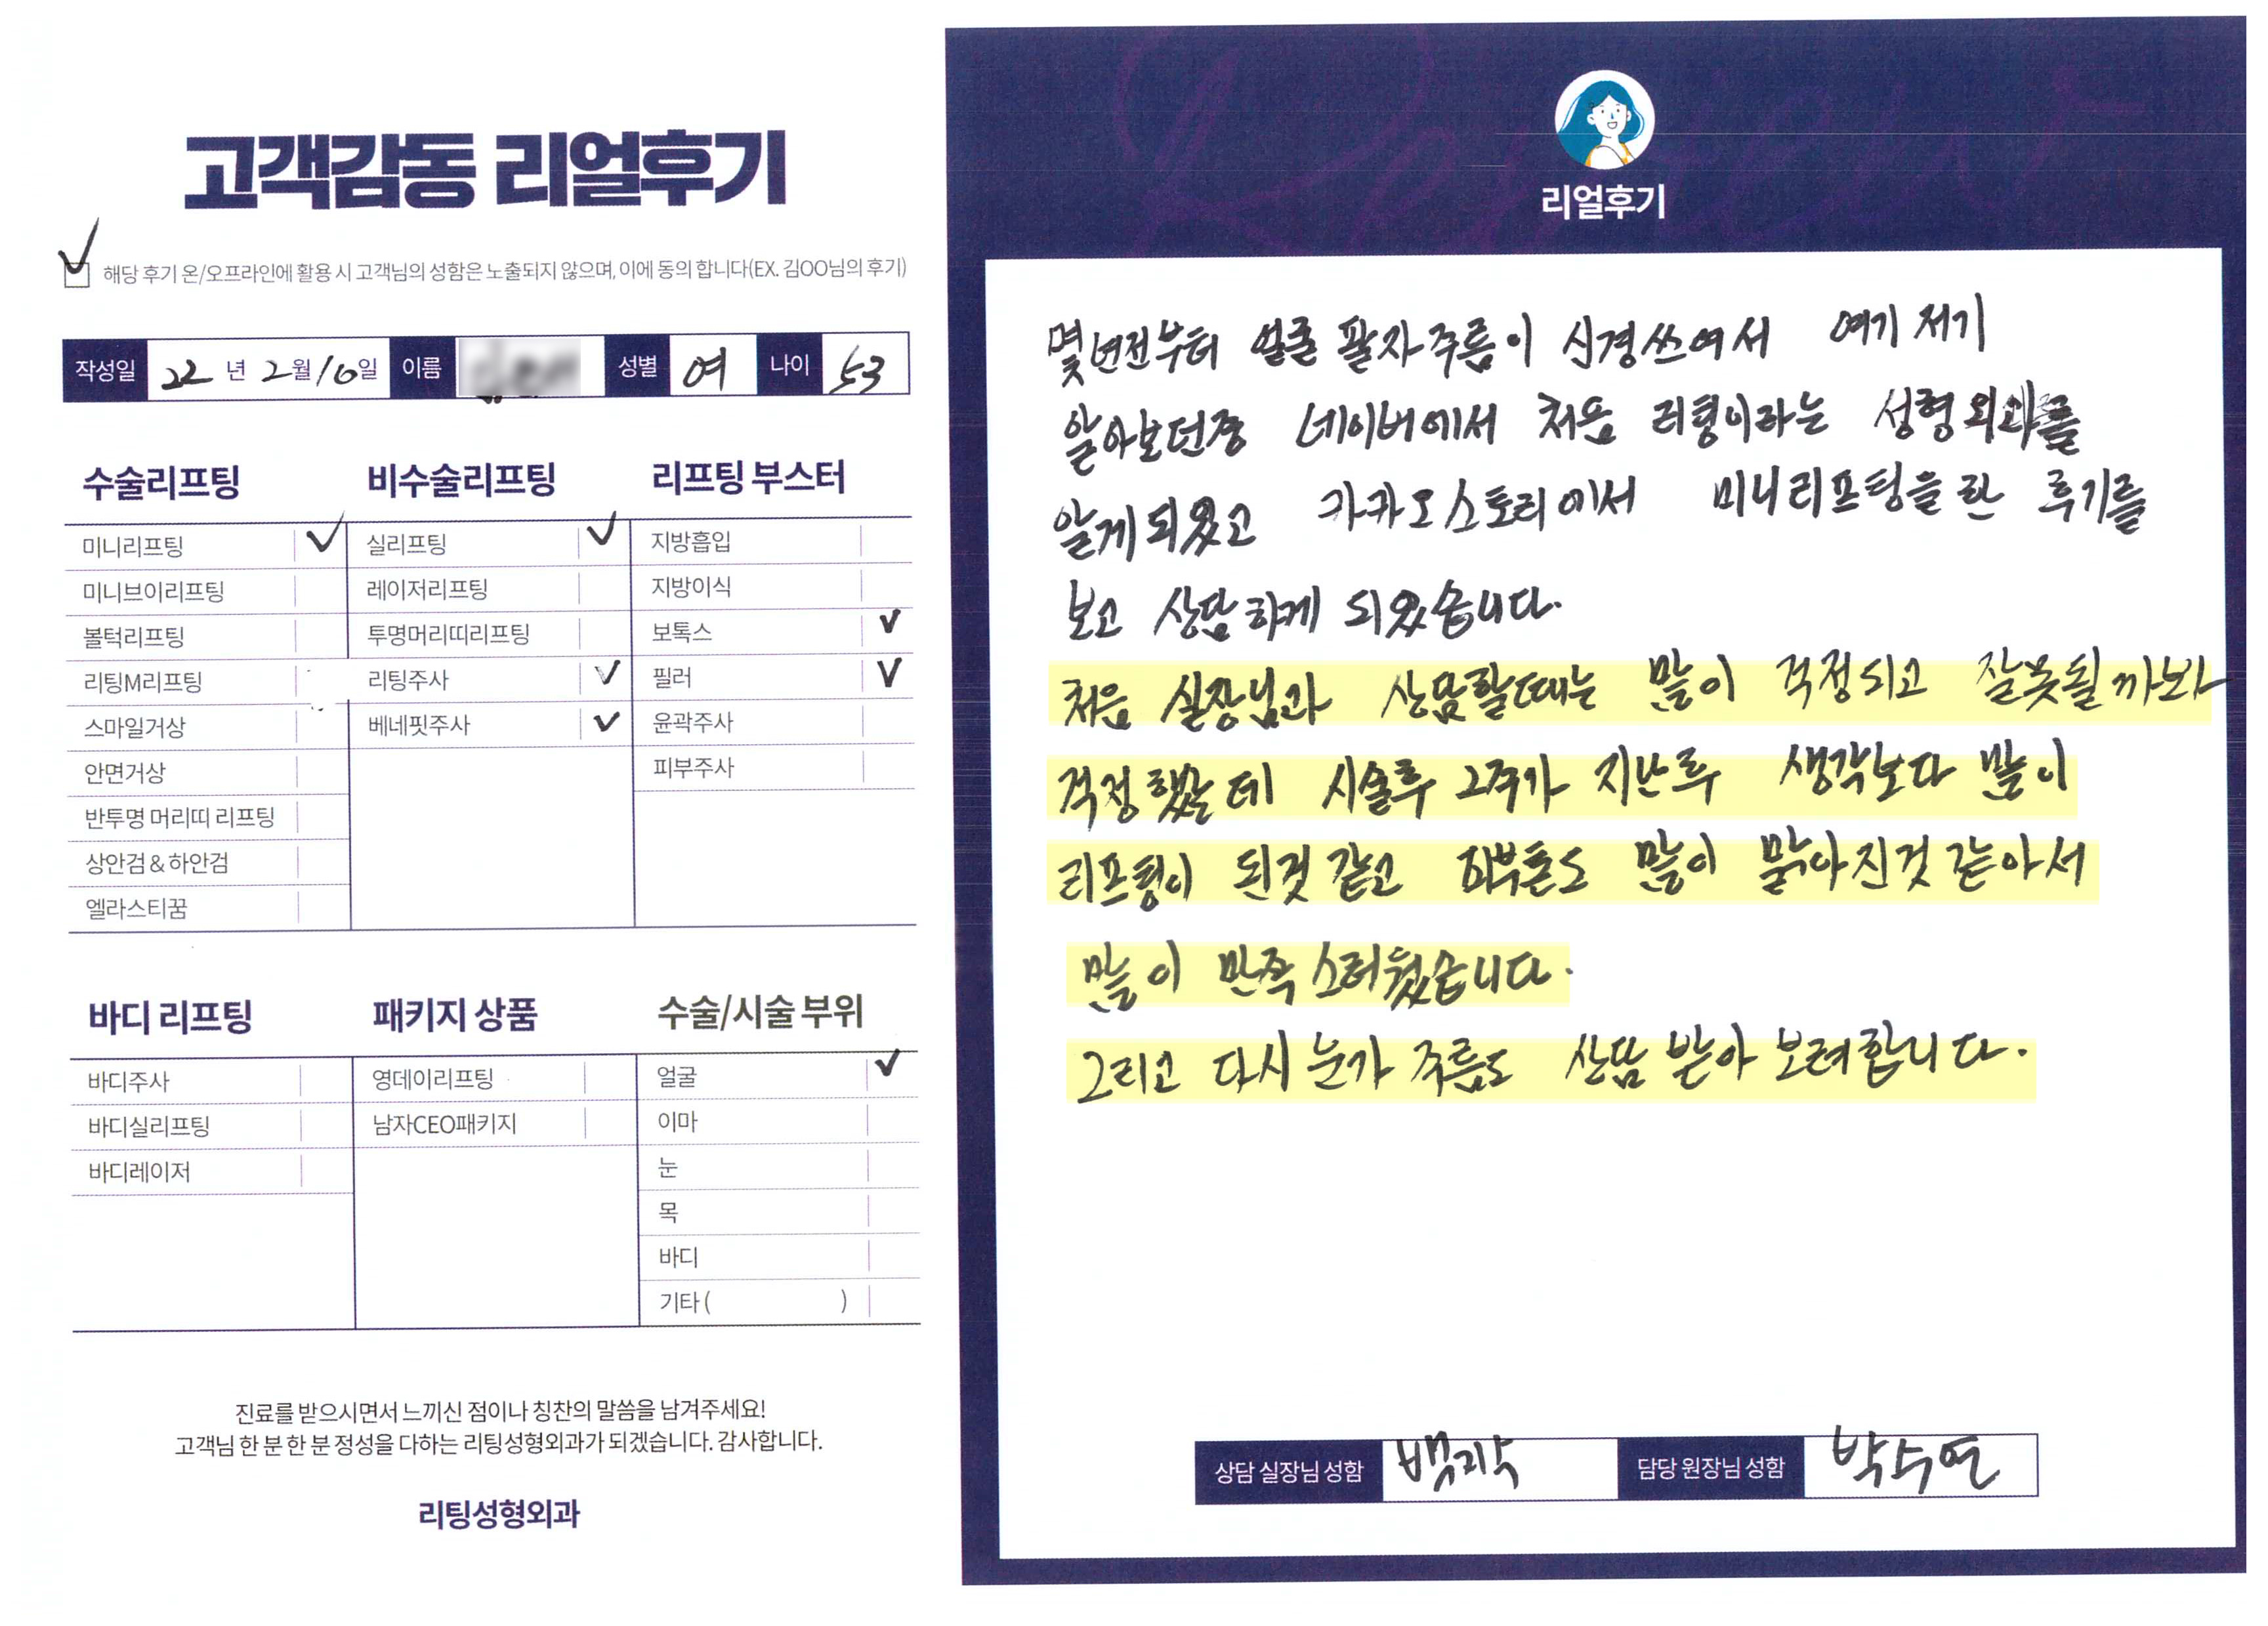 고객감동 리얼후기
해당 후기 온/오프라인에 활용 시 고객님의 성함은 노출되지 않으며, 이에 동의 합니다(EX. 김OO님의 후기)
작성일 22년 2월 10일 이름 성별 여 나이 53
수술리프팅
미니리프팅 ✓
미니브이리프팅
볼턱리프팅
리팅M리프팅
스마일거상
안면거상
반투명 머리띠 리프팅
상안검&하안검
엘라스티꿈
비수술리프팅
실리프팅 ✓
레이저리프팅
투명머리띠리프팅
리팅주사 ✓
베네핏주사 ✓
리프팅 부스터
지방흡입
지방이식
보톡스 ✓
필러 ✓
윤곽주사
피부주사
바디 리프팅
바디주사
바디실리프팅
바디레이저
패키지 상품
영데이리프팅
남자CEO패키지
수술/시술 부위
얼굴 ✓
이마
눈
목
바디
기타 ( )
진료를 받으시면서 느끼신 점이나 칭찬의 말씀을 남겨주세요!
고객님 한 분 한 분 정성을 다하는 리팅성형외과가 되겠습니다. 감사합니다.
리팅성형외과
리얼후기
몇년전부터 얼굴 팔자주름이 신경쓰여서 여기저기
알아보던중 네이버에서 처음 리팅이라는 성형외과를
알게되있고 카카오스토리에서 미니리프팅을 한 후기를
보고 상담하게 되있습니다.
처음 실장님과 상담할때는 많이 걱정되고 잘못될까봐
걱정했는데 시술후 2주가 지난후 생각보다 많이
리프팅이 된것 같고 피부톤도 많이 맑아진것 같아서
많이 만족스러웠습니다.
그리고 다시 눈가 주름도 상담 받아 보려합니다.
상담 실장님 성함
담당 원장님 성함 박수연